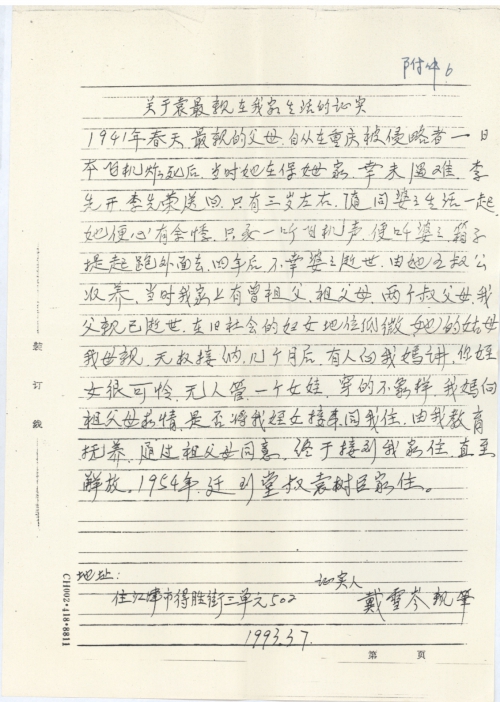 附件6
关于袁最亲在我家生活的证实
1941年春天,最亲的父母,自从在重庆被侵略者一日
本飞机炸死后,当时她在保姆家,幸未遇难,李
先开、李先荣送回,只有三岁左右,随同婆婆生活一起
她便心有余悸,只要一听飞机声,便叫婆婆,箱子
提起跑外面去,四年后不幸婆婆逝世,由她五叔公
收养,当时我家上有曾祖父,祖父母,两个叔父母,我
父亲已逝世,在旧社会的妇女地位低微,她的姑母
我母亲,无权接纳,几个月后,有人向我妈讲,你侄
女很可怜,无人管,一个女娃,穿的不象样,我妈向
祖父母求情,是否将我侄女接来同我住,由我教育
抚养,通过祖父母同意,终于接到我家住,直至
解放。1954年,迁到堂叔袁树臣家住。
地址:
住江津市得胜街三单元502
证实人
戴雪岑 执笔
1993.3.7.
第 页
装 订 线
CH002·418·8811